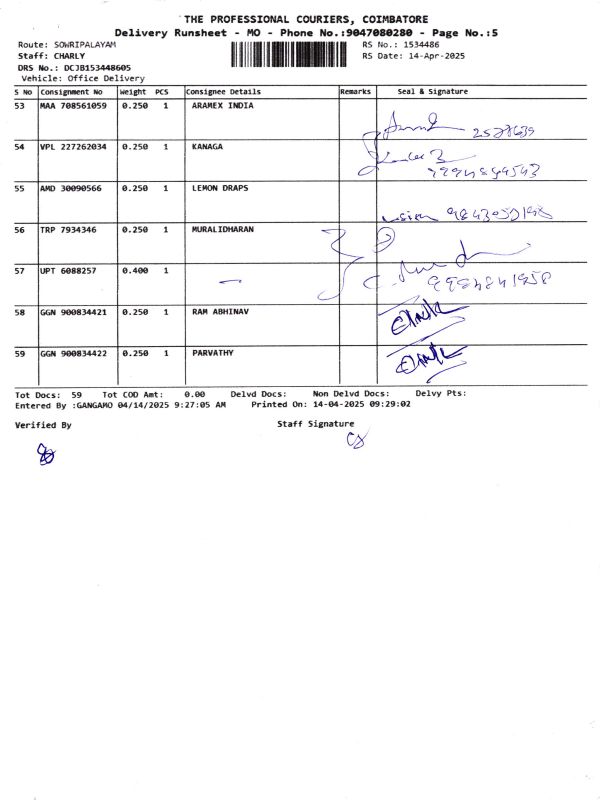 THE PROFESSIONAL COURIERS, COIMBATORE
Delivery Runsheet - MO - Phone No.:9047080280 - Page No.:5
Route: SOWRIPALAYAM RS No.: 1534486
Staff: CHARLY RS Date: 14-Apr-2025
DRS No.: DCJB153448605
Vehicle: Office Delivery
S No Consignment No Weight PCS Consignee Details Remarks Seal & Signature
53 MAA 708561059 0.250 1 ARAMEX INDIA
54 VPL 227262034 0.250 1 KANAGA
55 AMD 30090566 0.250 1 LEMON DRAPS
56 TRP 7934346 0.250 1 MURALIDHARAN
57 UPT 6088257 0.400 1
58 GGN 900834421 0.250 1 RAM ABHINAV
59 GGN 900834422 0.250 1 PARVATHY
Tot Docs: 59 Tot COD Amt: 0.00 Delvd Docs: Non Delvd Docs: Delvy Pts:
Entered By :GANGAMO 04/14/2025 9:27:05 AM Printed On: 14-04-2025 09:29:02
Verified By Staff Signature